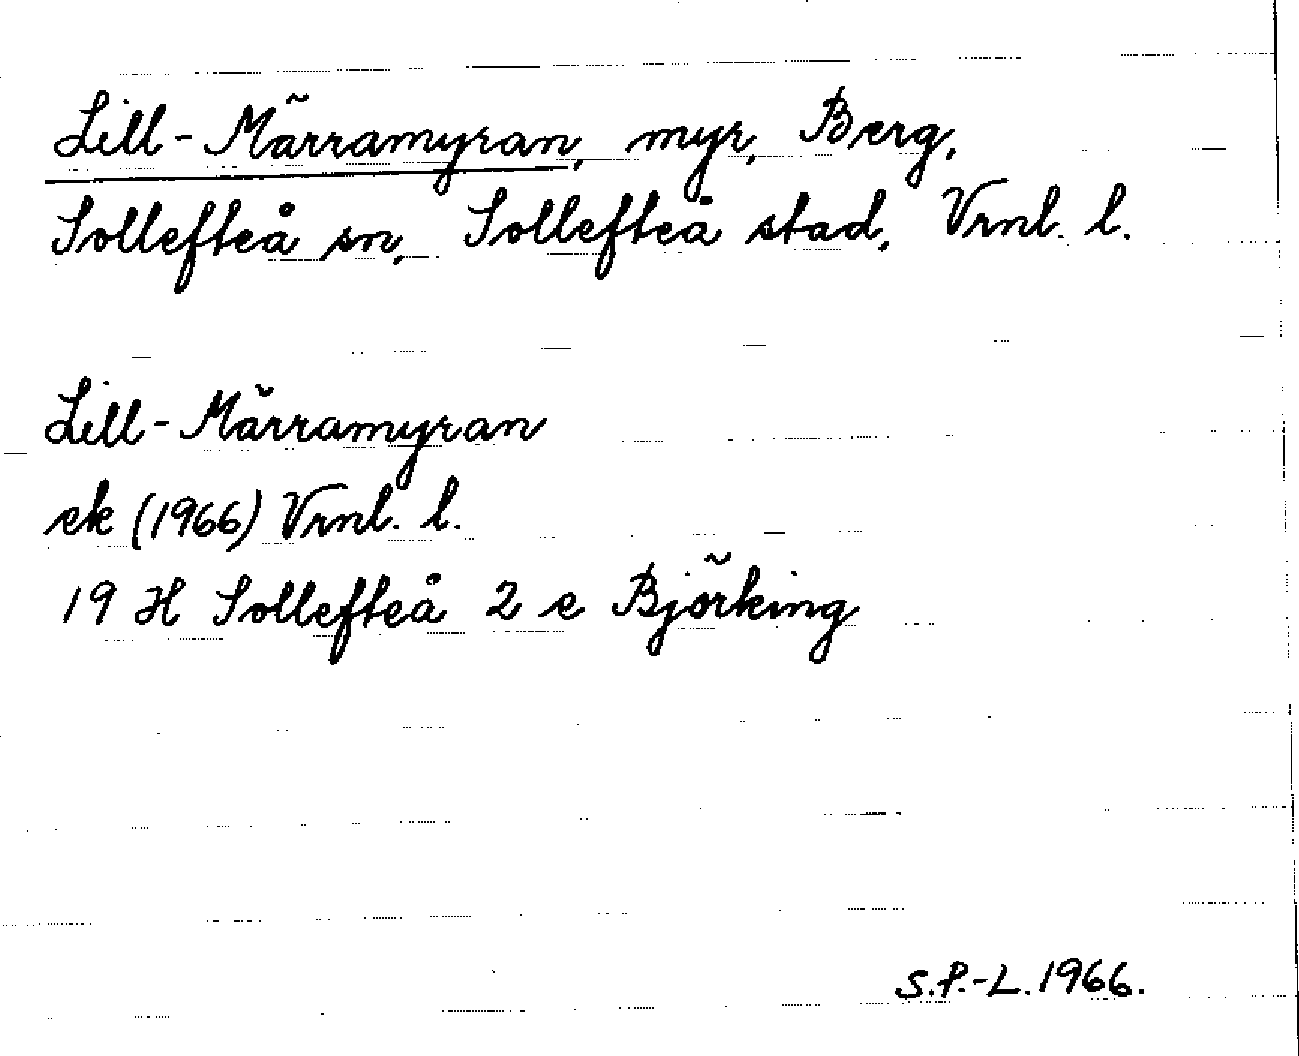 Lill-Märramyran, myr, Berg,
Sollefteå sn, Sollefteå stad, Vrnl. l.
Lill-Märramyran
ek (1966) Vrnl. l.
19 H Sollefteå 2 e Björking
S.P.-L. 1966.